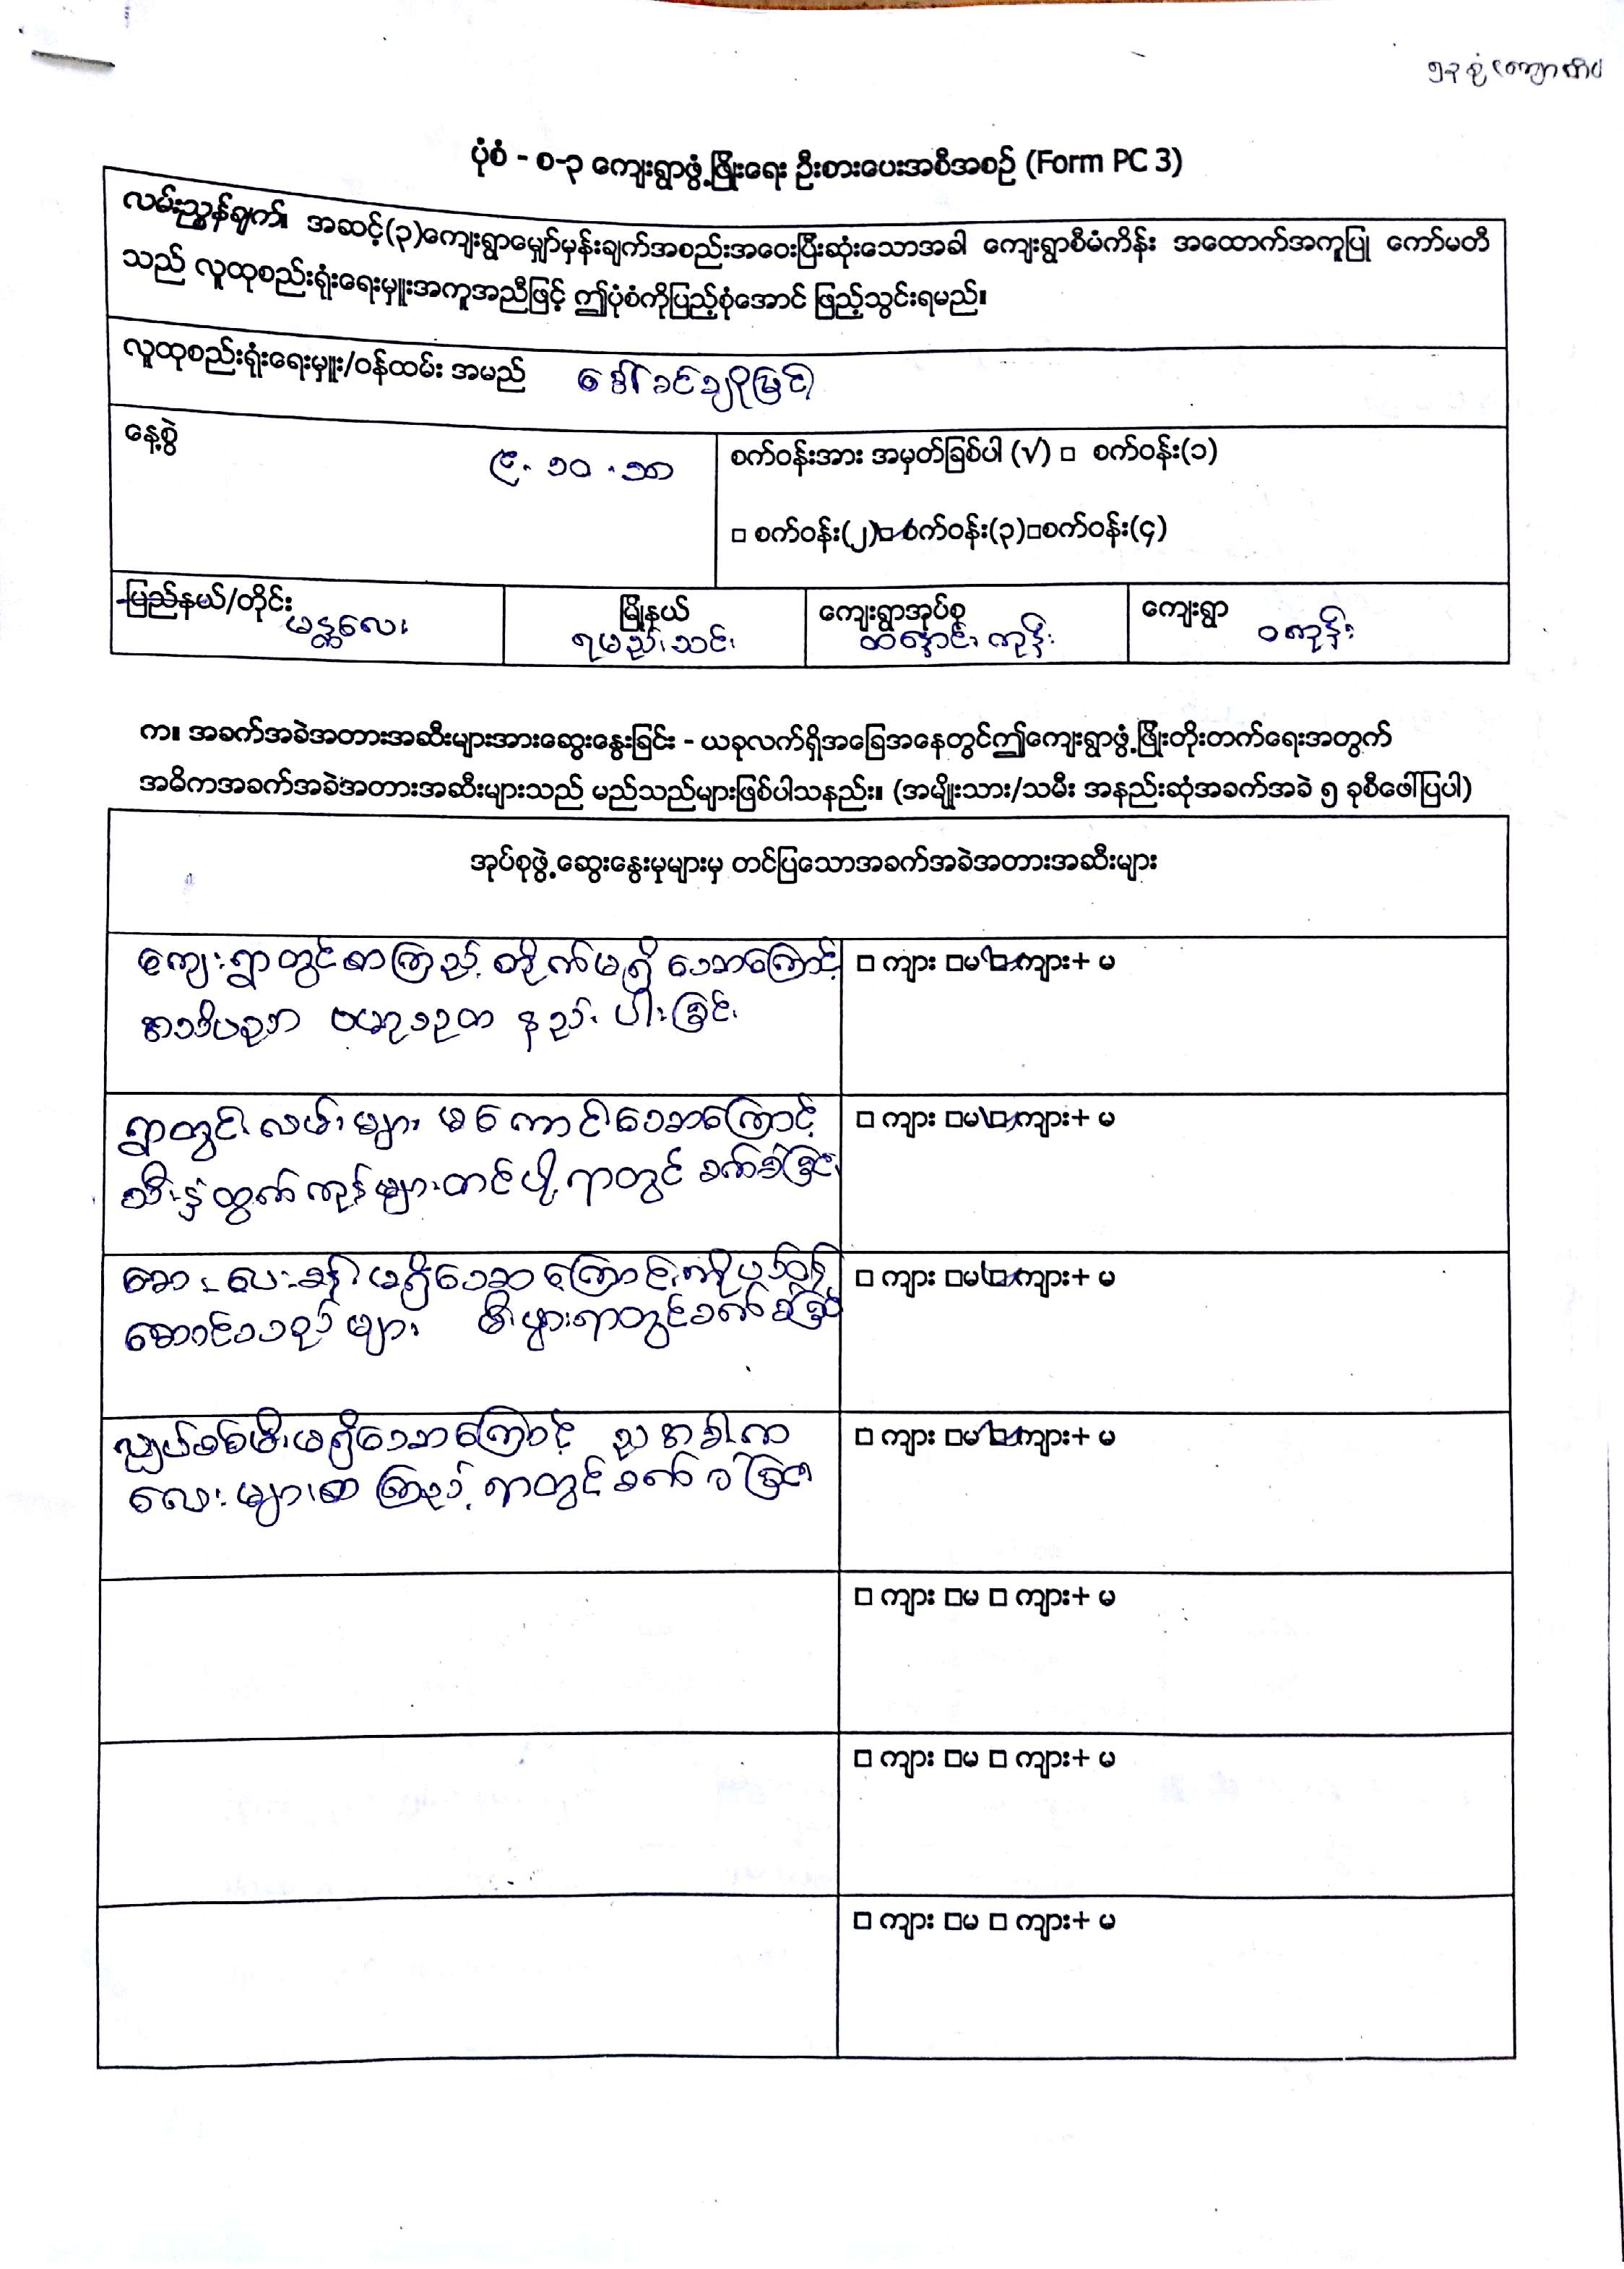 ပုံစံ - စ-၃ ကျေးရွာဖွံ့ဖြိုးရေး ဦးစားပေးအစီအစဉ် (Form PC 3)
လမ်းညွှန်ချက်။ အဆင့်(၃)ကျေးရွာမျှော်မှန်းချက်အစည်းအဝေးပြီးဆုံးသောအခါ ကျေးရွာစီမံကိန်း အထောက်အကူပြု ကော်မတီ
သည် လူထုစည်းရုံးရေးမှူးအကူအညီဖြင့် ဤပုံစံကိုပြည့်စုံအောင် ဖြည့်သွင်းရမည်။
လူထုစည်းရုံးရေးမှူး/ဝန်ထမ်း အမည် ဒေါ်ခင်ချိုမြင့်
နေ့စွဲ ၉.၁၀.၁၈
စက်ဝန်းအား အမှတ်ခြစ်ပါ (√) □ စက်ဝန်း(၁)
□ စက်ဝန်း(၂)□စက်ဝန်း(၃)□စက်ဝန်း(၄)
ပြည်နယ်/တိုင်း မန္တလေး
မြို့နယ် ရမည်းသင်း
ကျေးရွာအုပ်စု ထနောင်းကုန်း
ကျေးရွာ ဝကုန်း
က။ အခက်အခဲအတားအဆီးများအားဆွေးနွေးခြင်း - ယခုလက်ရှိအခြေအနေတွင်ဤကျေးရွာဖွံ့ဖြိုးတိုးတက်ရေးအတွက်
အဓိကအခက်အခဲအတားအဆီးများသည် မည်သည်များဖြစ်ပါသနည်း။ (အမျိုးသား/သမီး အနည်းဆုံအခက်အခဲ ၅ ခုစီဖေါ်ပြပါ)
အုပ်စုဖွဲ့ဆွေးနွေးမှုများမှ တင်ပြသောအခက်အခဲအတားအဆီးများ
ကျေးရွာတွင်စာကြည့်တိုက်မရှိသောကြောင့် □ ကျား □မ □ ကျား+ မ
စာပေပညာ ဗဟုသုတ နည်းပါးခြင်း
ရွာတွင်းလမ်းများ မကောင်းသောကြောင့် □ ကျား □မ □ ကျား+ မ
သီးနှံထွက်ကုန်များတင်ပို့ရာတွင် ခက်ခဲခြင်း
ဆေးပေးခန်းမရှိသောကြောင့်ကိုယ်ဝန် □ ကျား □မ □ ကျား+ မ
ဆောင်သည်များ မီးဖွားရာတွင်ခက်ခဲခြင်း
လျှပ်စစ်မီးမရှိသောကြောင့် ညအခါက □ ကျား □မ □ ကျား+ မ
လေးများစာကြည့်ရာတွင်ခက်ခဲခြင်း
□ ကျား □မ □ ကျား+ မ
□ ကျား □မ □ ကျား+ မ
□ ကျား □မ □ ကျား+ မ